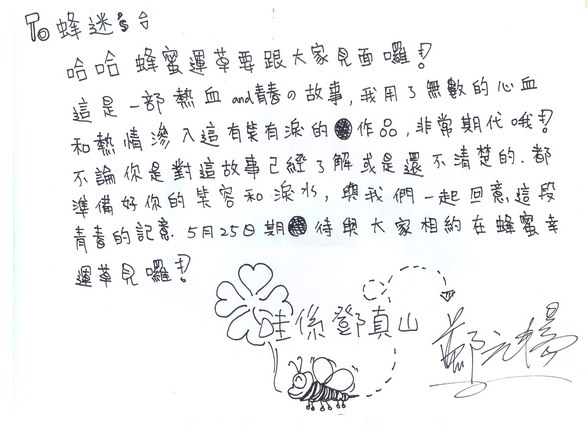 To 蜂迷's
哈哈 蜂蜜運草要跟大家見面囉!
這是一部熱血and青春の故事,我用了無數的心血
和熱情滲入這有笑有淚的作品,非常期代哦!
不論你是對這故事已經了解或是還不清楚的.都
準備好你的笑容和淚水,與我們一起回意.這段
青春的記意.5月25日期待與大家相約在蜂蜜幸
運草見囉!
哇係鄧真山
鄭元暢